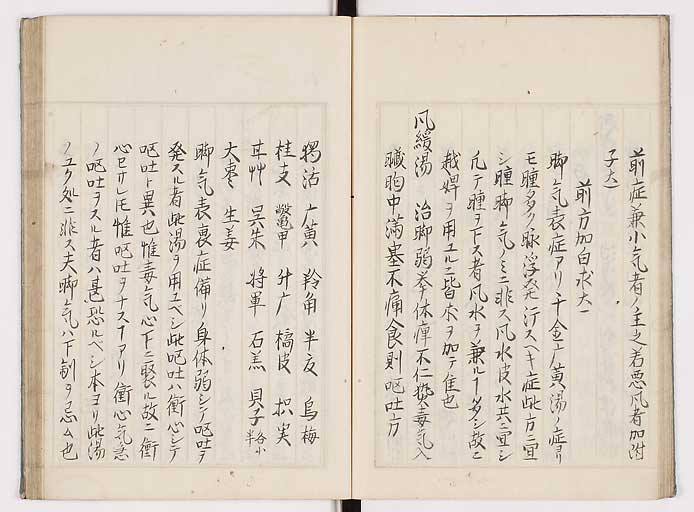 前症兼小气者ノ主之若悪凡者加附
子大一
前方加白求大一
脚气表症アリ千金广黄湯ノ症ヨリ
モ腫多ク脉浮発汗スヘキ症此方ニ宜
シ腫脚气ノミニ非ス凡水皮水共ニ宜シ
凡テ腫ヲ下ス者凡水ヲ兼ルー多シ故ニ
越婢ヲ用ユルニ皆朮ヲ加テ佳也
凡緩湯 治脚弱挙体痺不仁熱毒气入
臓胸中満塞不痛食則呕吐方
独活 广黄 羚角 半夏 烏梅
桂支 鱉甲 升广 橘皮 枳実
甘艸 吴朱 将軍 石羔 貝子各小半
大棗 生姜
脚气表裏症備リ身体弱シテ呕吐ヲ
発スル者此湯ヲ用ユベシ此呕吐ハ衝心シテ
呕吐ト異也惟毒气心下ニ聚ル故ニ衝
心セサレモ惟呕吐ヲナスーアリ衝心气急
ノ呕吐ヲスル者ハ甚恐ルベシ本ヨリ此湯
ノユク処ニ非ス夫脚气ハ下剤ヲ忌ム也